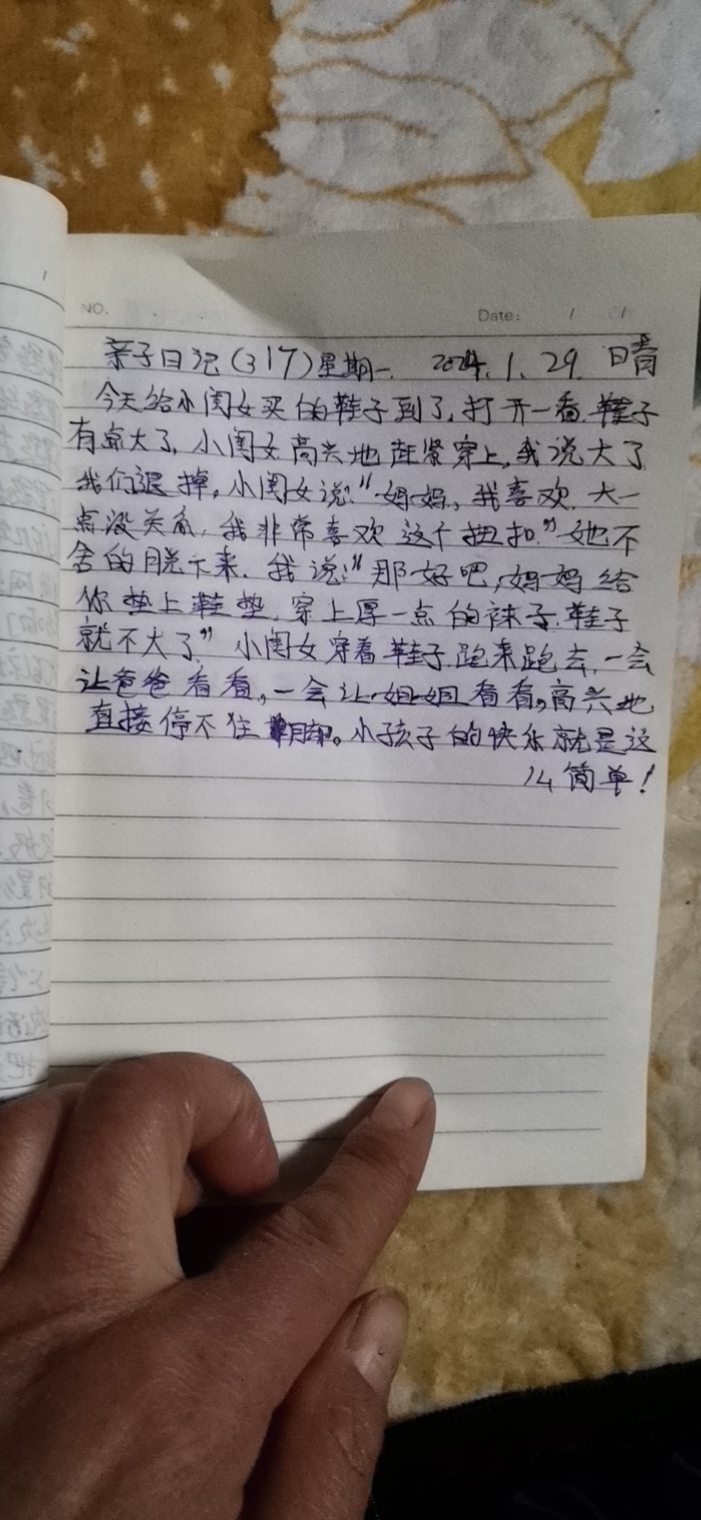 NO.
Date: / /
亲子日记(317)星期一. 2024.1.29. 晴
今天给小闺女买的鞋子到了,打开一看,鞋子
有点大了,小闺女高兴地赶紧穿上,我说大了
我们退掉。小闺女说:"妈妈,我喜欢,大一
点没关系,我非常喜欢这个扭扣。"她不
舍的脱下来,我说:"那好吧,妈妈给
你垫上鞋垫,穿上厚一点的袜子,鞋子
就不大了"小闺女穿着鞋子,跑来跑去,一会
让爸爸看看,一会让姐姐看看,高兴地
直接停不住脚。小孩子的快乐就是这
么简单!